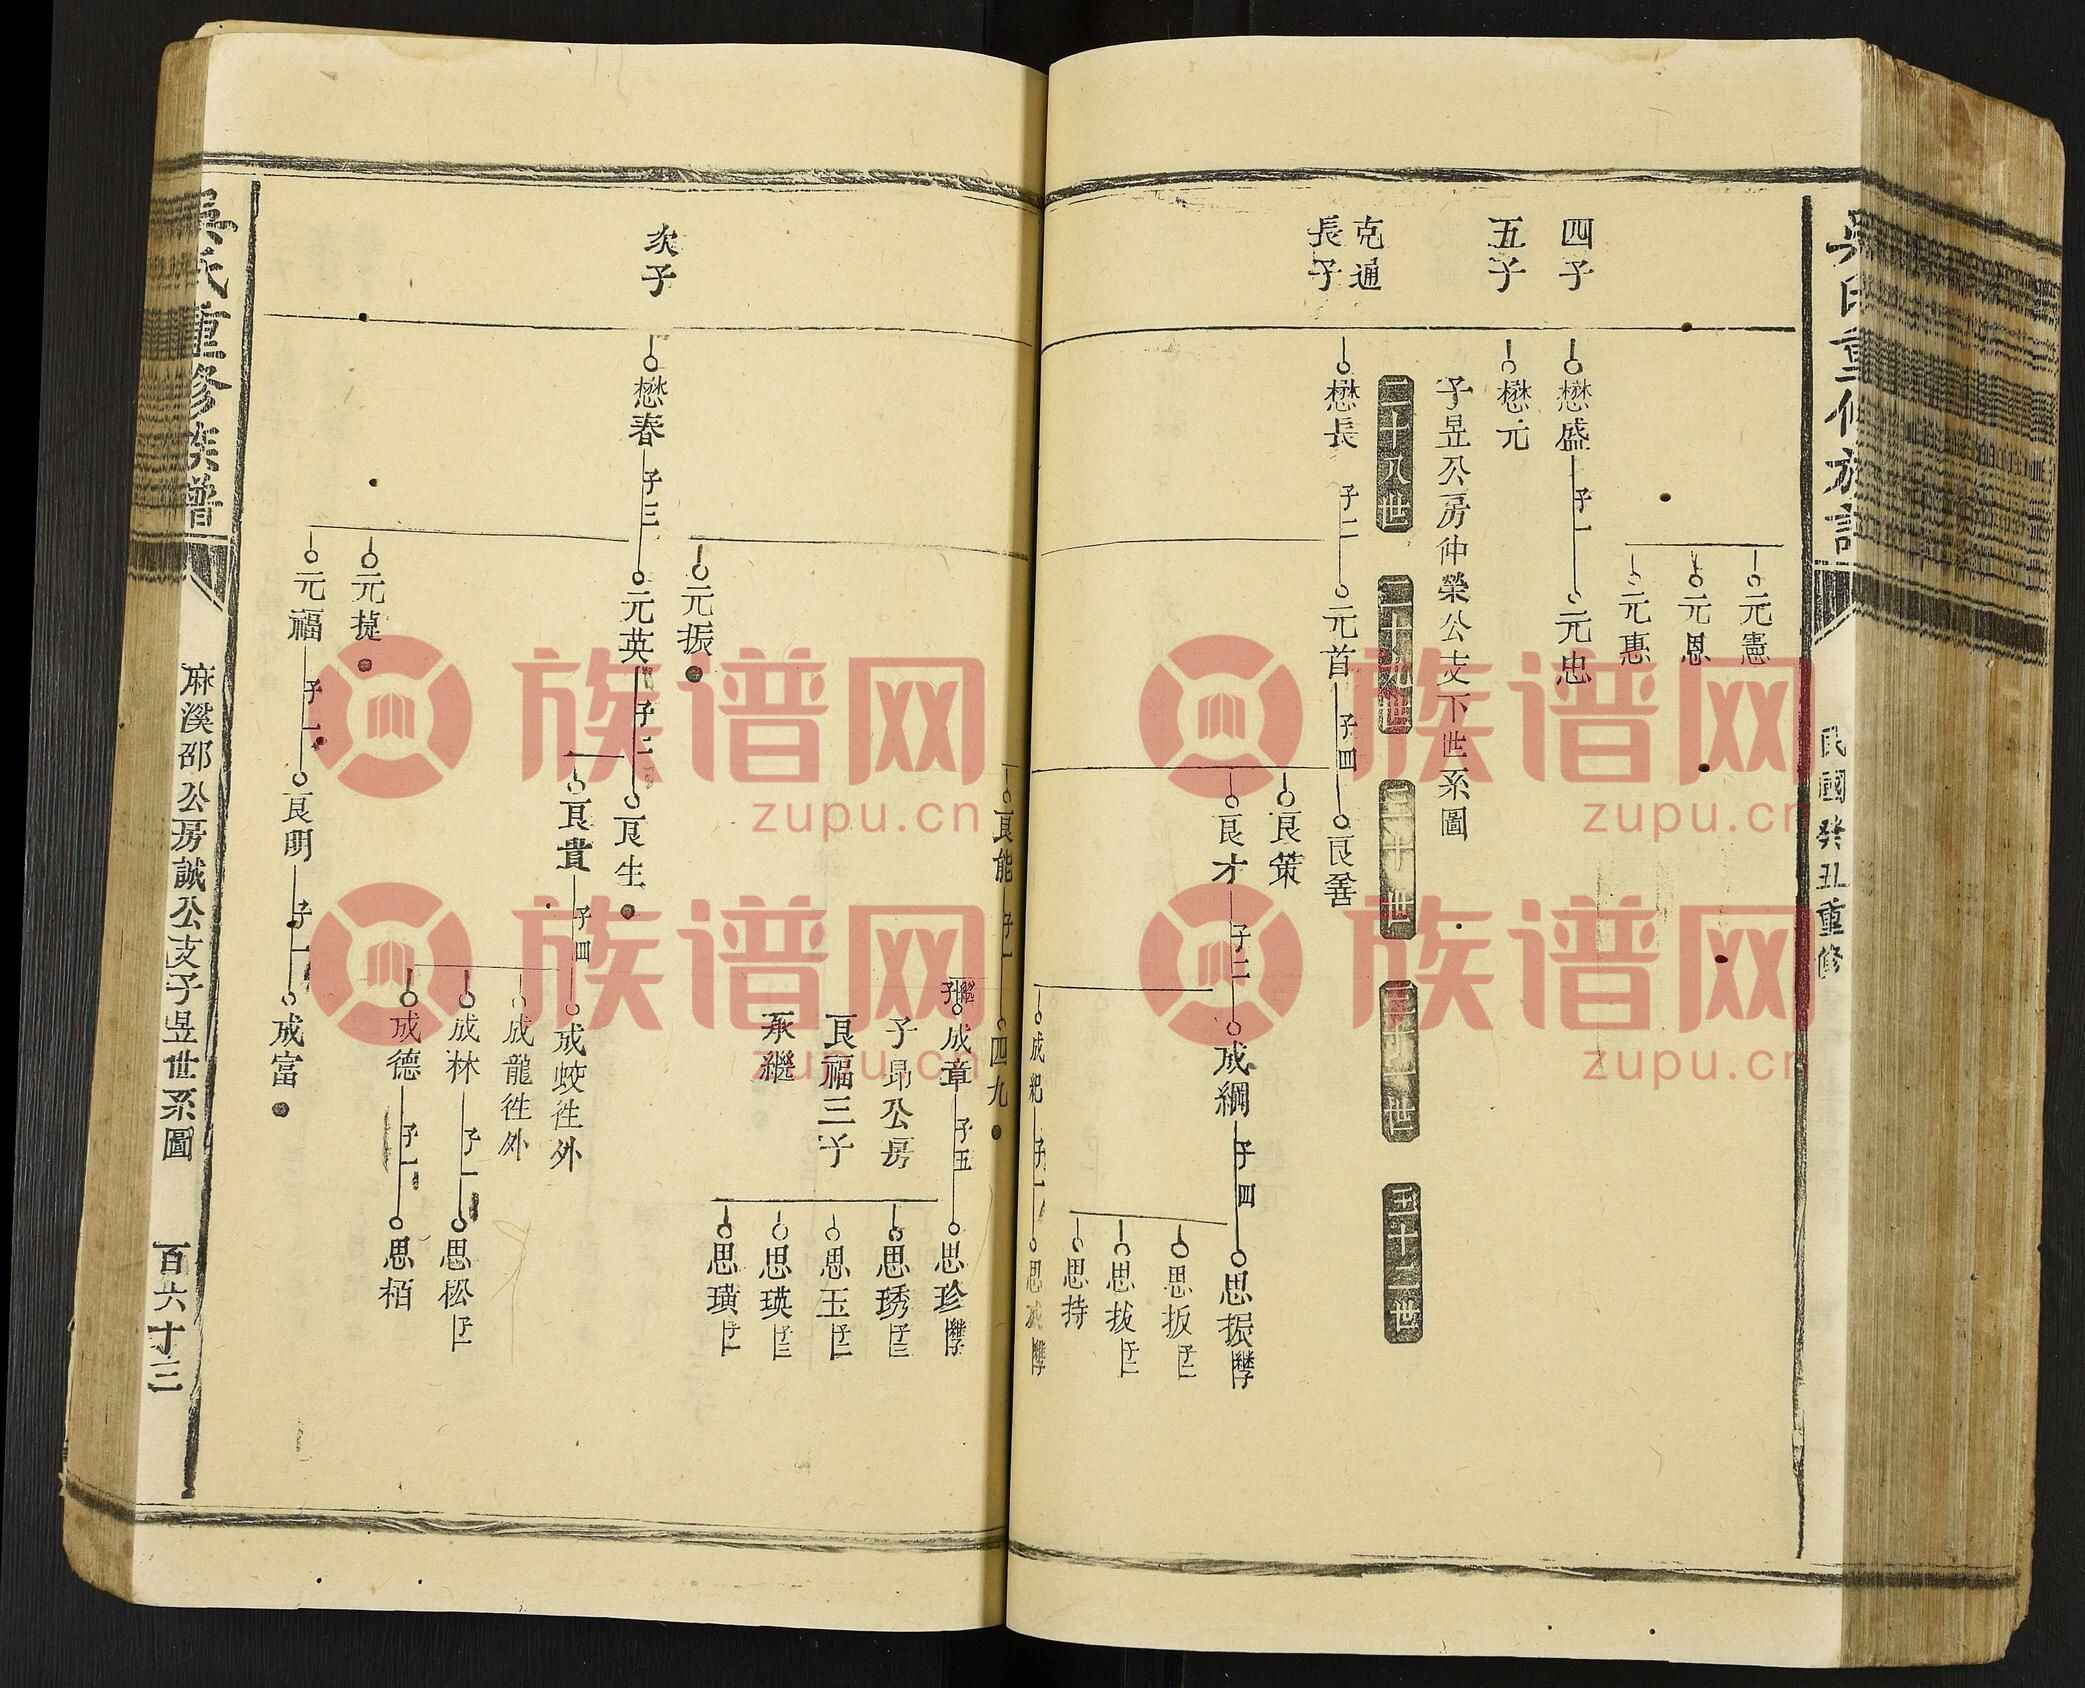 吳氏重修族譜
民國癸丑重修
元憲
元恩
元惠
四子
懋盛
子一
元忠
五子
懋元
子昱公房仲榮公支下世系圖
二十八世
二十九世
三十世
三十一世
三十二世
克通
長子
懋長
子二
元首
子四
良善
良策
良才
子二
成綱
子四
思振
思扳
子二
思拔
子二
思持
成紀
子一
思成
良能
子一
四九
成章
子五
思珍
子昂公房
良福三子
承繼
思琇
子三
思玉
子二
思瑛
子三
思璜
子二
元振
次子
懋春
子三
元英
子二
良生
良貴
子四
成蛟徃外
成龍徃外
成林
子一
思松
子二
成德
子一
思栢
元捷
元福
子一
良明
子一
成富
吳氏重修族譜
麻溪邵公房誠公支子昱世系圖
百六十三
族谱网
zupu.cn
族谱网
zupu.cn
族谱网
zupu.cn
族谱网
zupu.cn